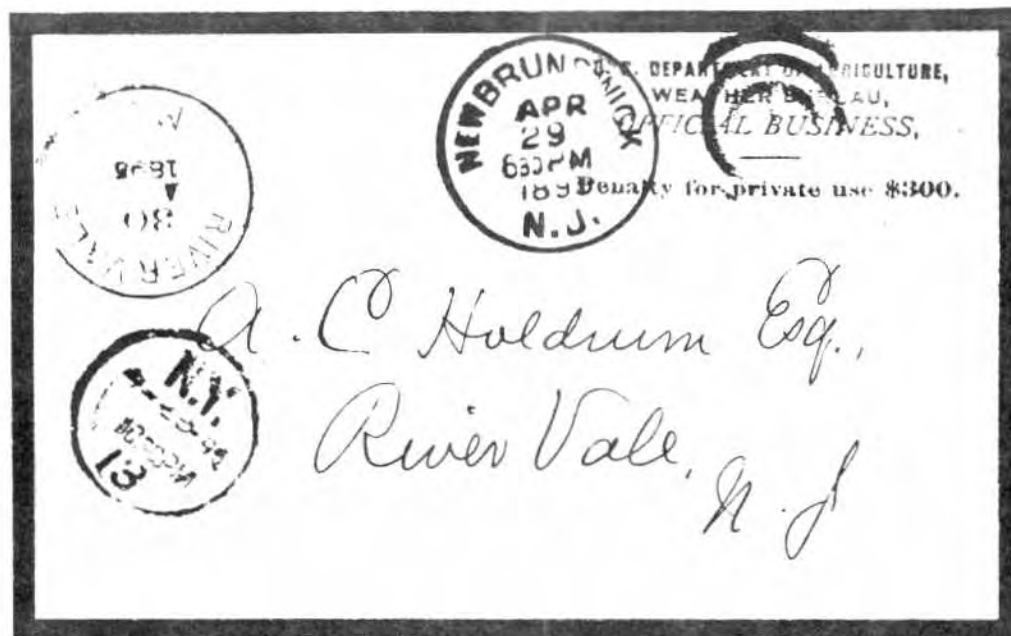 U.S. DEPARTMENT OF AGRICULTURE,
WEATHER BUREAU,
OFFICIAL BUSINESS,
Penalty for private use $300.
NEW BRUNSWICK
APR
29
630 PM
189
N.J.
RIVERVALE
30
A
1895
N.Y.
13
A. C Holdrum Esq.,
River Vale,
N. J